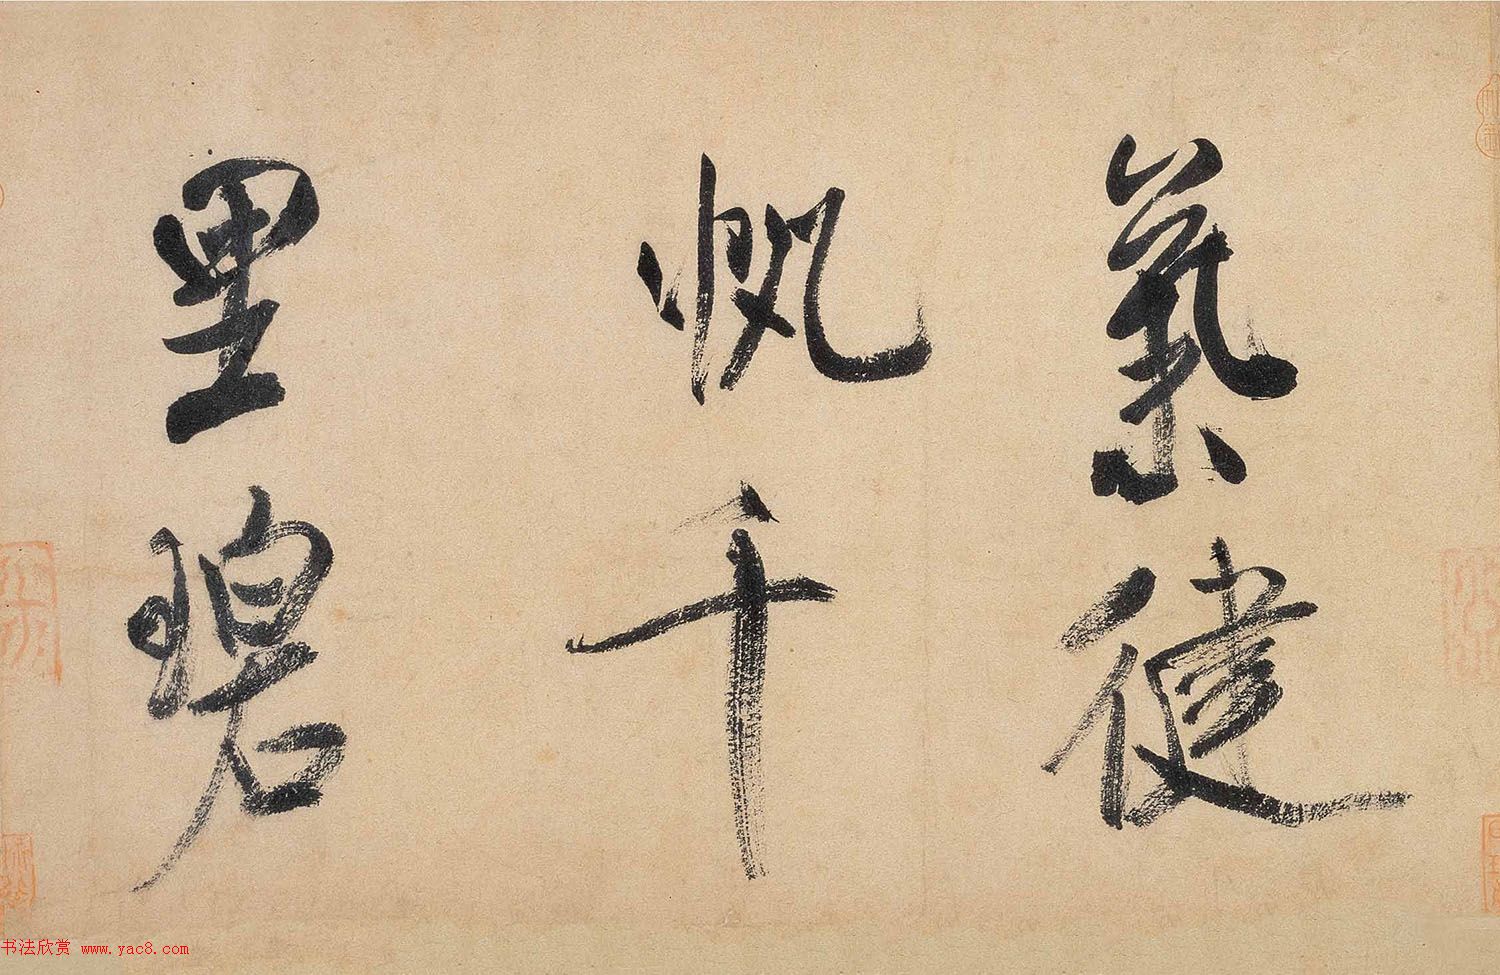 氣健
帆千
里碧
书法欣赏 www.yac8.com